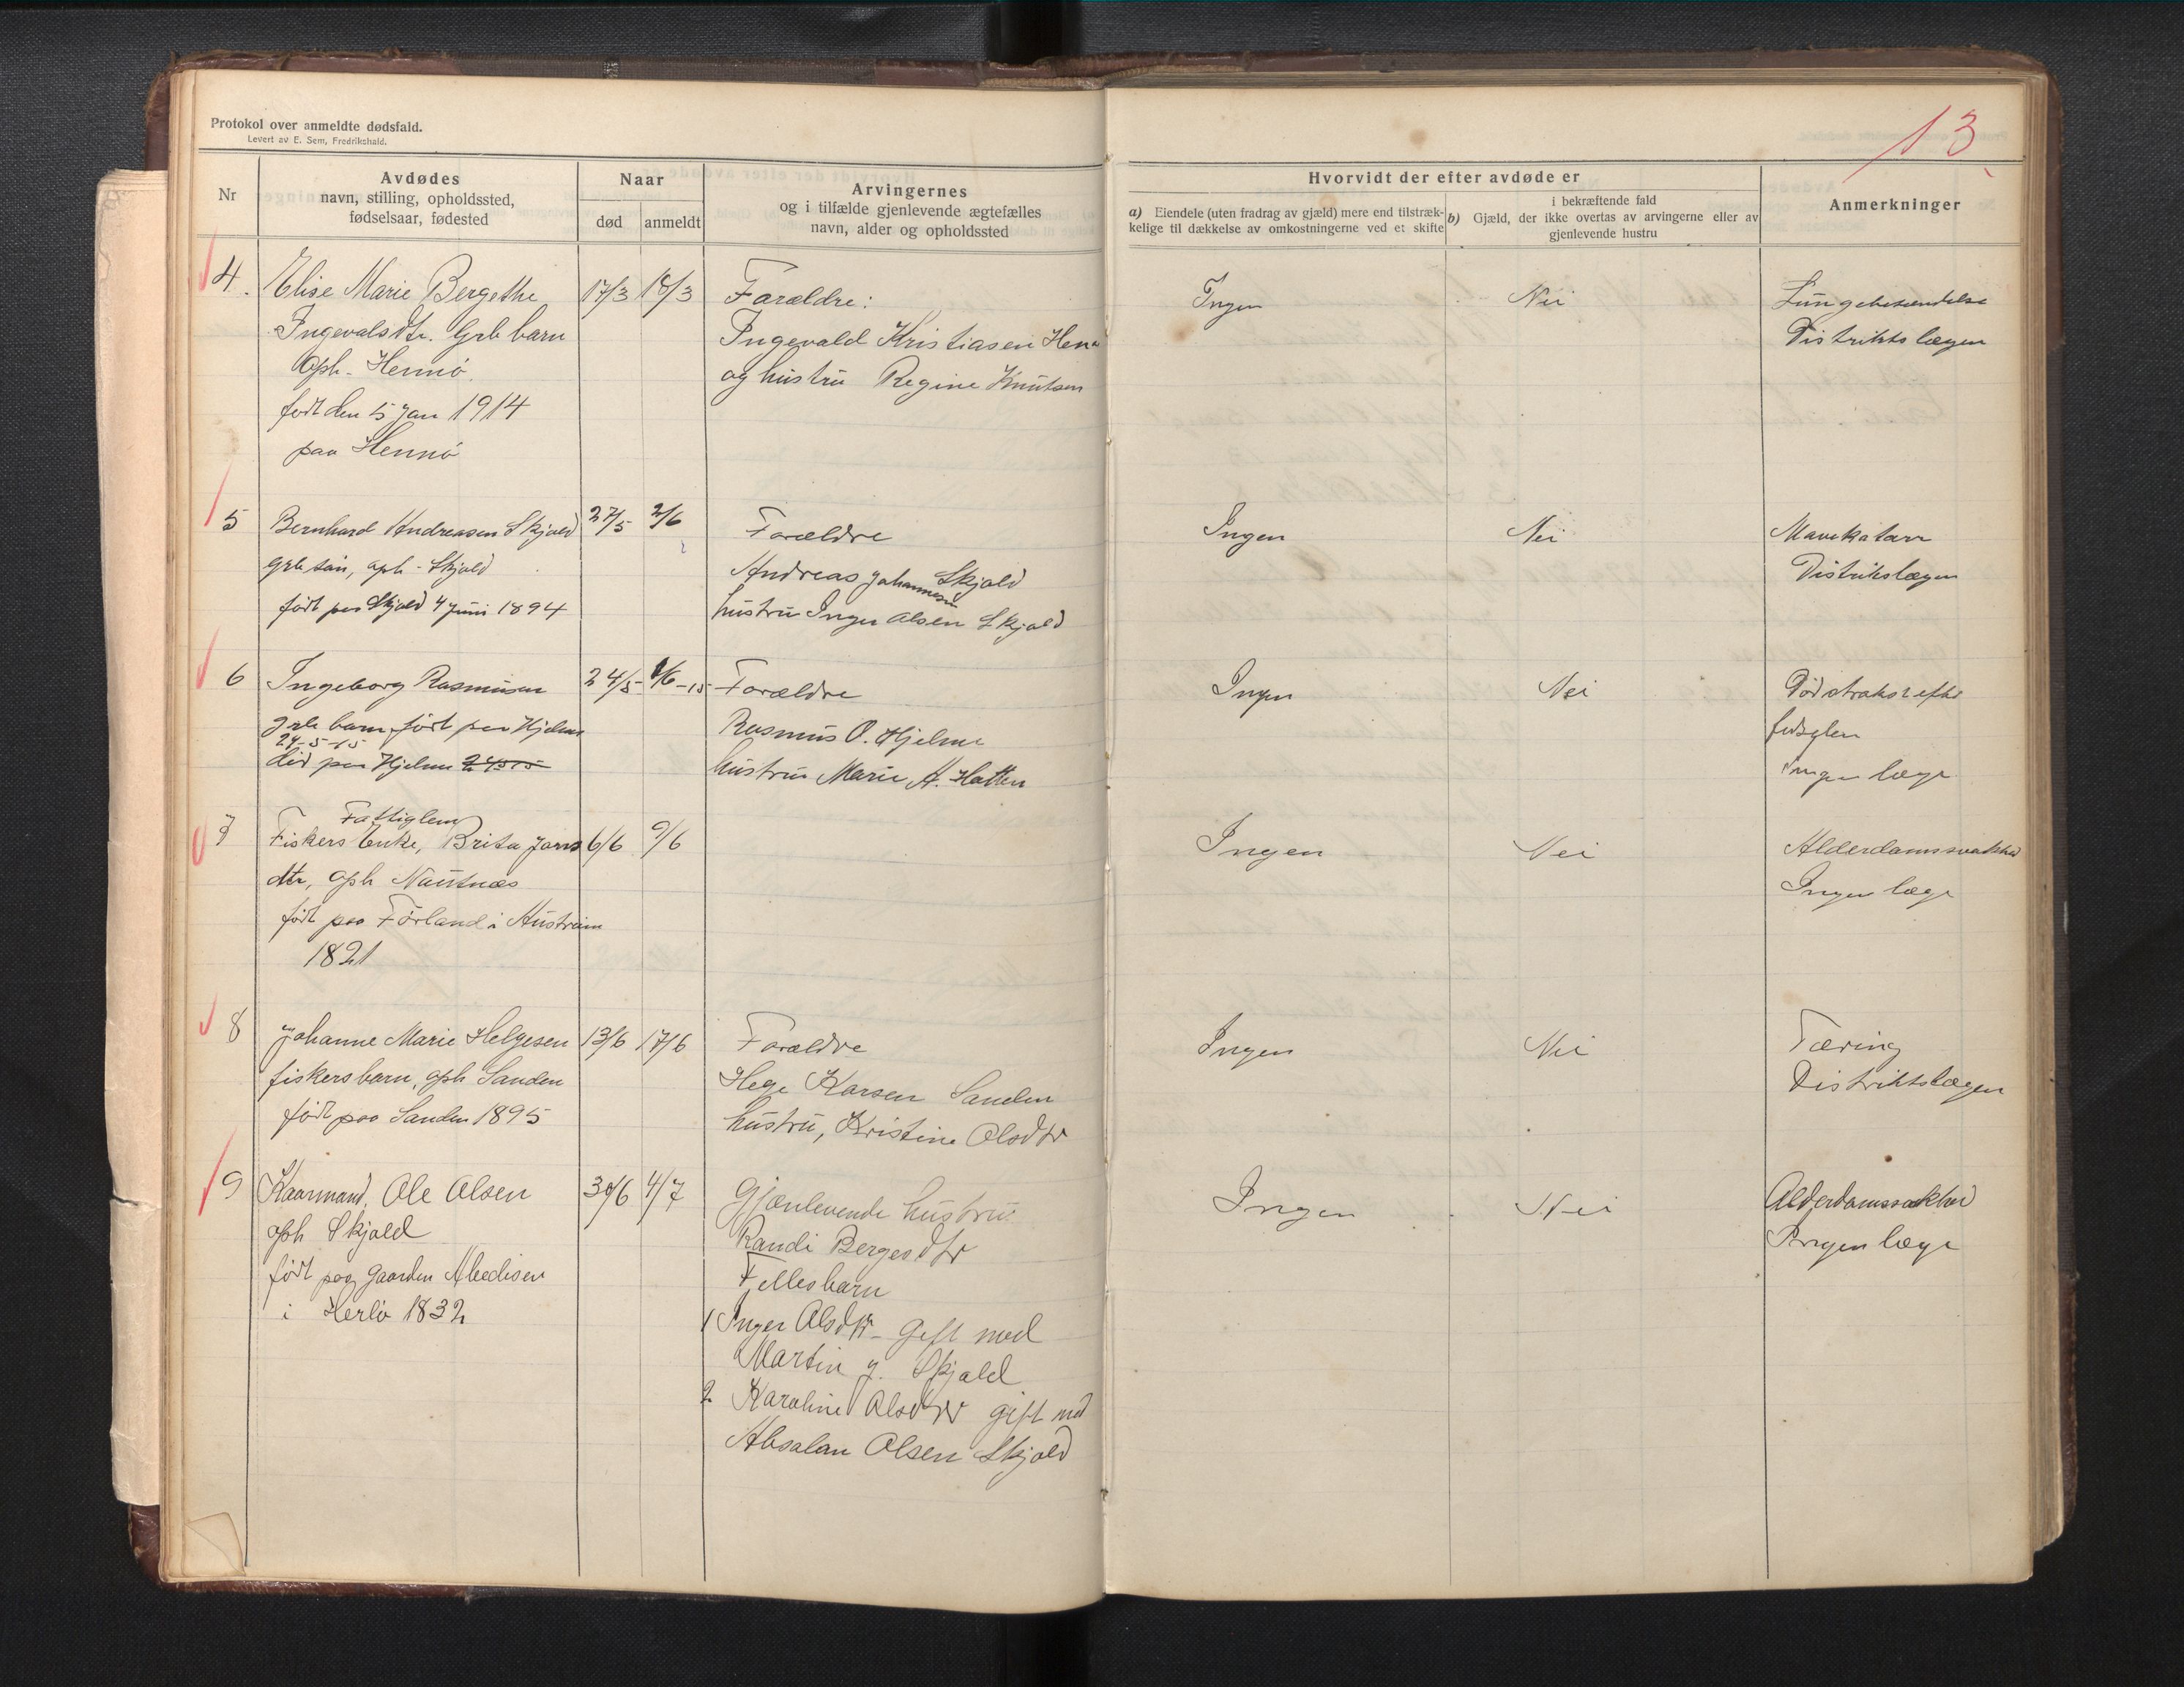 Protokol over anmeldte dødsfald.
Levert av E. Sem, Fredrikshald.
13
Nr
Avdødes
navn, stilling, opholdssted,
fødselsaar, fødested
Naar
død
anmeldt
Arvingernes
og i tilfælde gjenlevende ægtefælles
navn, alder og opholdssted
Hvorvidt der efter avdøde er
a) Eiendele (uten fradrag av gjæld) mere end tilstræk-
kelige til dækkelse av omkostningerne ved et skifte
i bekræftende fald
b) Gjæld, der ikke overtas av arvingerne eller av
gjenlevende hustru
Anmerkninger
4. Elise Marie Bergethe
Ingevalsdtr. Grb barn
Oph. Hernnø
født den 5 Jan 1914
paa Hernnø
17/3 18/3
Forældre:
Ingevald Kristiasen Hern
og hustru Regine Knutsen
Ingen
Nei
Lungebetændelse
Distriktslægen
5 Bernhard Andreasen Skjold
grb søn, oph. Skjold
født paa Skjold 4 Juni 1894
27/5 2/6
Forældre
Andreas Johannesen Skjold
hustru Inger Olsen Skjold
Ingen
Nei
Mavekatarr
Distrikslægen
6 Ingeborg Rasmusen
grb barn, født paa Hjelme
24-5-15
død paa Hjelme 24 5 15
24/5 1/6-15
Forældre
Rasmus O. Hjelme
hustru Marie A. Hatten
Ingen
Nei
Død straks efter
fødslen
Ingen læge
7 Fattiglem
Fiskers Enke, Brita Jans
dtr, oph Nautnæs
født paa Førland i Austreim
1821
6/6 9/6
Ingen
Nei
Alderdomssvakhed
Ingen læge
8 Johanne Marie Helgesen
fiskersbarn, oph Sanden
født paa Sanden 1895
13/6 17/6
Forældre
Hege Karsen Sanden
hustru, Kristine Olsdtr
Ingen
Nei
Tæring
Distriktslægen
9 Kaarmand, Ole Olsen
oph Skjold
født paa gaarden
i Herlø 1832
30/6 4/7
Gjænlevende hustru
Randi Bergesdtr
Fellesbarn
1 Inger Olsdtr gift med
Martin J. Skjold
2 Karoline Olsdtr gift med
Absalon Olsen Skjold
Ingen
Nei
Alderdomssvakhed
Ingen læge